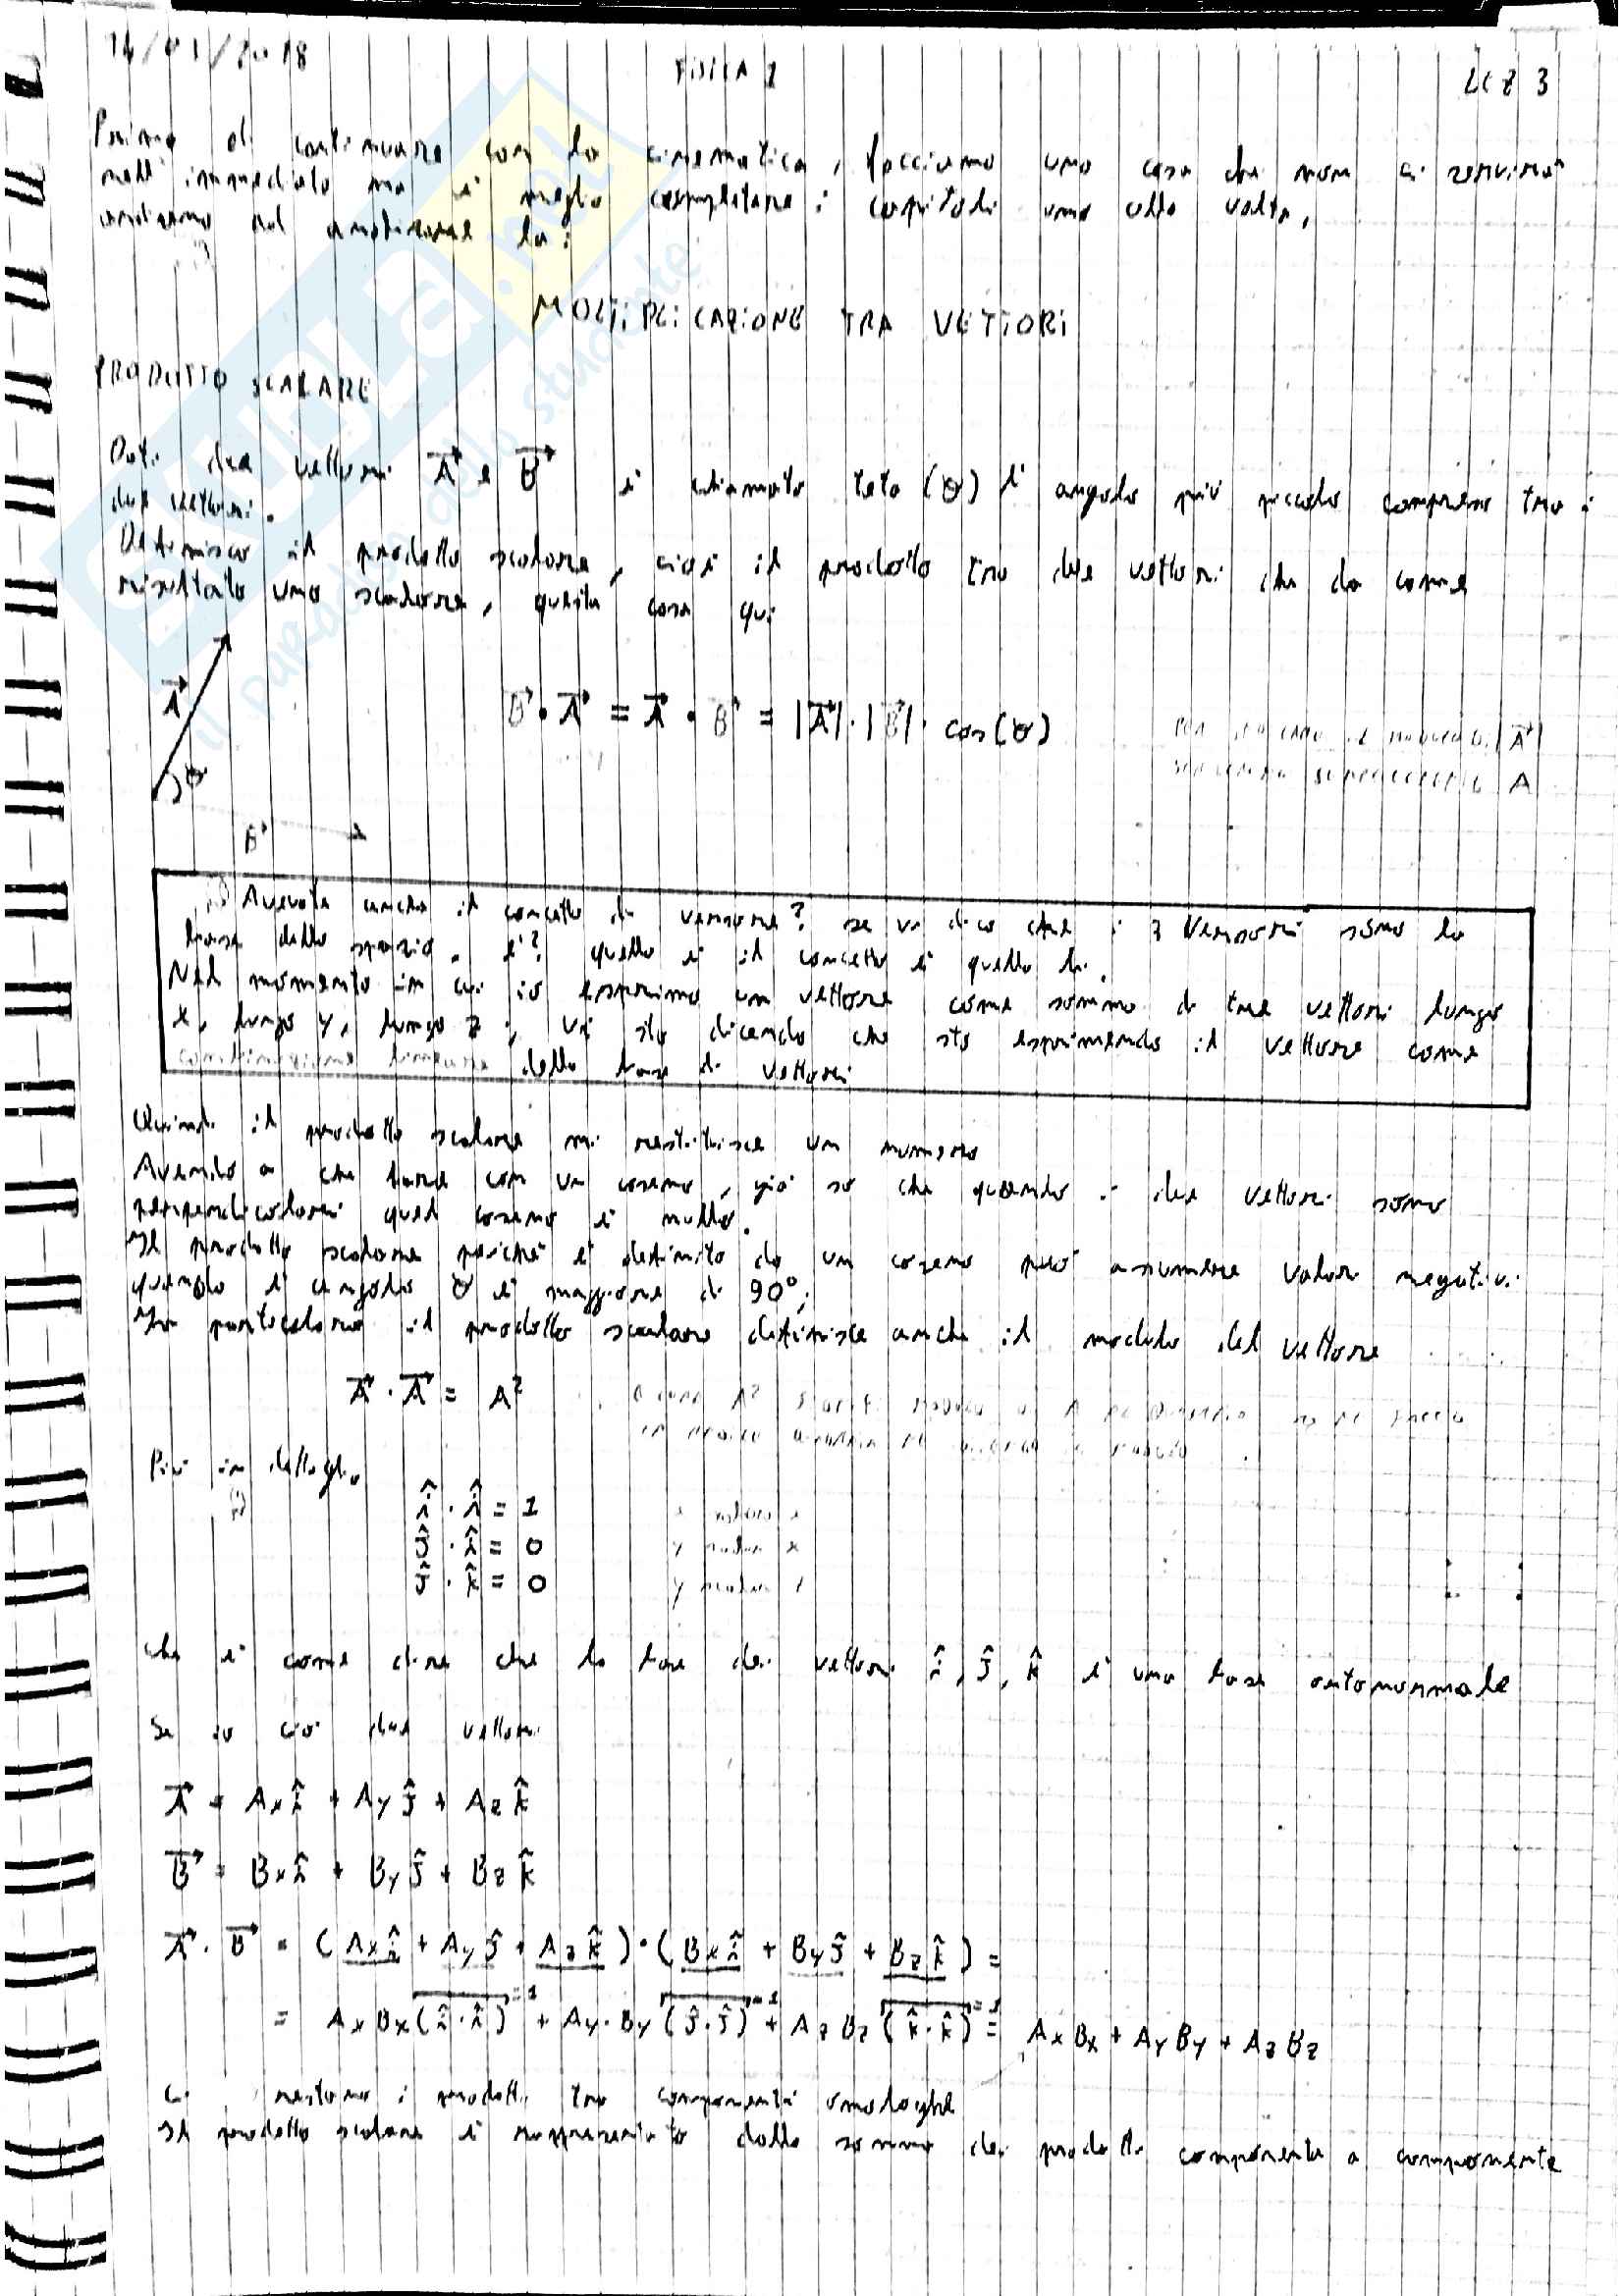 FISICA 1
LEZ 3
Prima di continuare con la cinematica, facciamo una cosa che non ci servirà
nell'immediato ma è meglio completare i capitoli uno alla volta,
andiamo ad la:
MOLTIPLICAZIONE TRA VETTORI
PRODOTTO SCALARE
Dati due vettori A e B è chiamato teta (θ) l'angolo più piccolo compreso tra i
due vettori.
Definisco il prodotto scalare, cioè il prodotto tra due vettori che da come
risultato uno scalare, questa cosa qui
A
B⃗ · A⃗ = A⃗ · B⃗ = |A⃗| · |B⃗| · cos(θ)
il modulo di |A⃗|
A
θ
B
Avevate anche il concetto di versore? se vi dico che i 3 Versori sono la
base dello spazio, è? quello è il concetto è quello lì.
Nel momento in cui io esprimo un vettore come somma di tre vettori lungo
x, lungo y, lungo z, vi sto dicendo che sto esprimendo il vettore come
combinazione lineare della base di vettori
Quindi il prodotto scalare mi restituisce un numero
Avendo a che fare con un coseno, già so che quando i due vettori sono
perpendicolari quel coseno è nullo.
Il prodotto scalare poiché è definito da un coseno può assumere valori negativi
quando l'angolo θ è maggiore di 90°;
In particolare il prodotto scalare definisce anche il modulo del vettore
A⃗ · A⃗ = A²
Più in dettaglio
î · î = 1 x scalare x
ĵ · î = 0 y scalar x
ĵ · k̂ = 0 y scalar
che è come dire che la base dei vettori î, ĵ, k̂ è una base ortonormale
Se io ho due vettori
A⃗ = Axî + Ayĵ + Azk̂
B⃗ = Bxî + Byĵ + Bzk̂
A⃗ · B⃗ = (Axî + Ayĵ + Azk̂) · (Bxî + Byĵ + Bzk̂) =
= AxBx(î·î)=1 + Ay·By(ĵ·ĵ)=1 + AzBz(k̂·k̂)=1 = AxBx + AyBy + AzBz
Ci restano i prodotti tra componenti omologhe
Il prodotto scalare è rappresentato dalla somma dei prodotti componente a componente